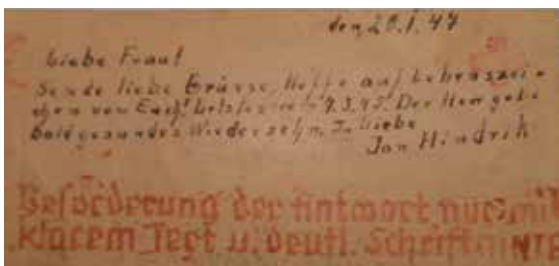 den 20.1.47
Liebe Frau!
Sende liebe Grüsse, Hoffe auf Lebenszei-
chen von Euch! Letztes 9.3.45. Der Herr gebe
bald gesundes Wiedersehn. In Liebe
Jan Hindrik
Beförderung der Antwort nur mit
klarem Text u. deutl. Schrift